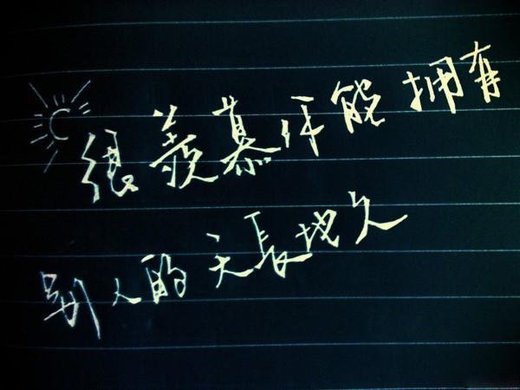 很羨慕你能拥有
别人的天長地久